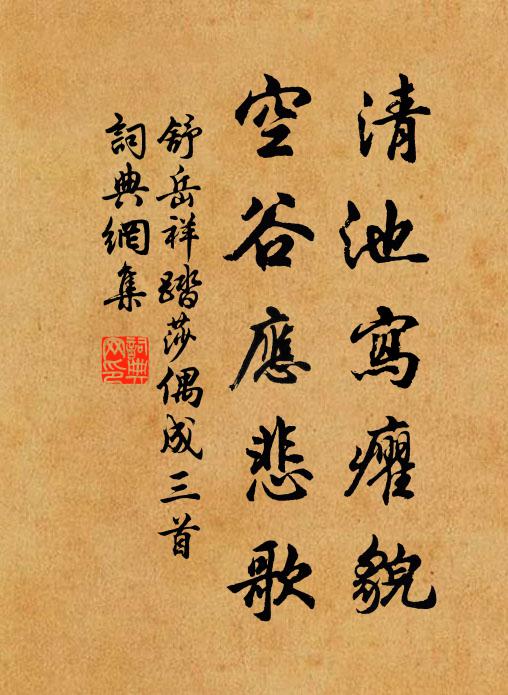 清池寫癯貌
空谷應悲歌
舒岳祥踏莎偶成三首
詞典網集
詞典
网印